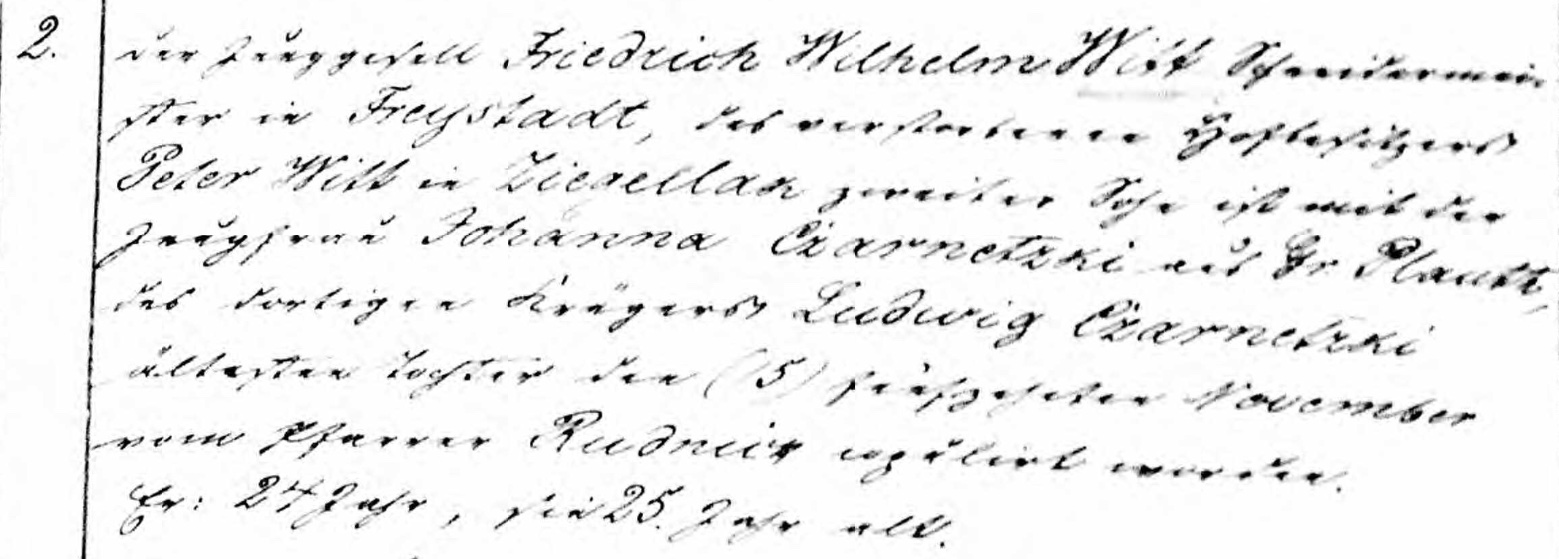 2. der Junggesell Friedrich Wilhelm Witt Schneidermei-
ster in Freystadt, des verstorbenen Hofbesitzers
Peter Witt in Ziegellak zweiter Sohn ist mit der
Jungfrau Johanna Czarnetzki aus Gr. Plautt,
des dortigen Krügers Ludwig Czarnetzki
ältesten Tochter den (15) fünfzehnten November
vom Pfarrer Rudnick copulirt worden.
Er: 24 Jahr, sie 25. Jahr alt.